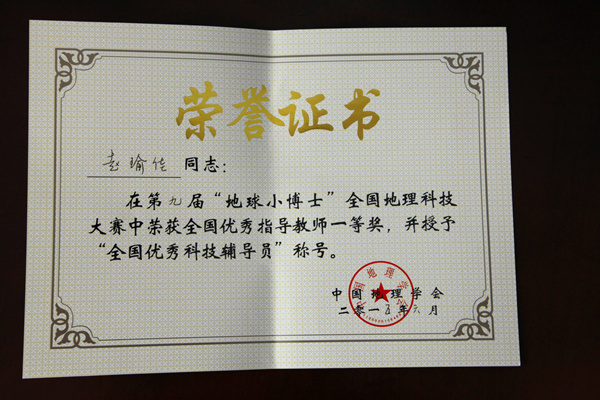 荣誉证书
赵瑜佳 同志：
在第九届“地球小博士”全国地理科技
大赛中荣获全国优秀指导教师一等奖，并授予
“全国优秀科技辅导员”称号。
中国地理学会
二零一五年六月
中国地理学会